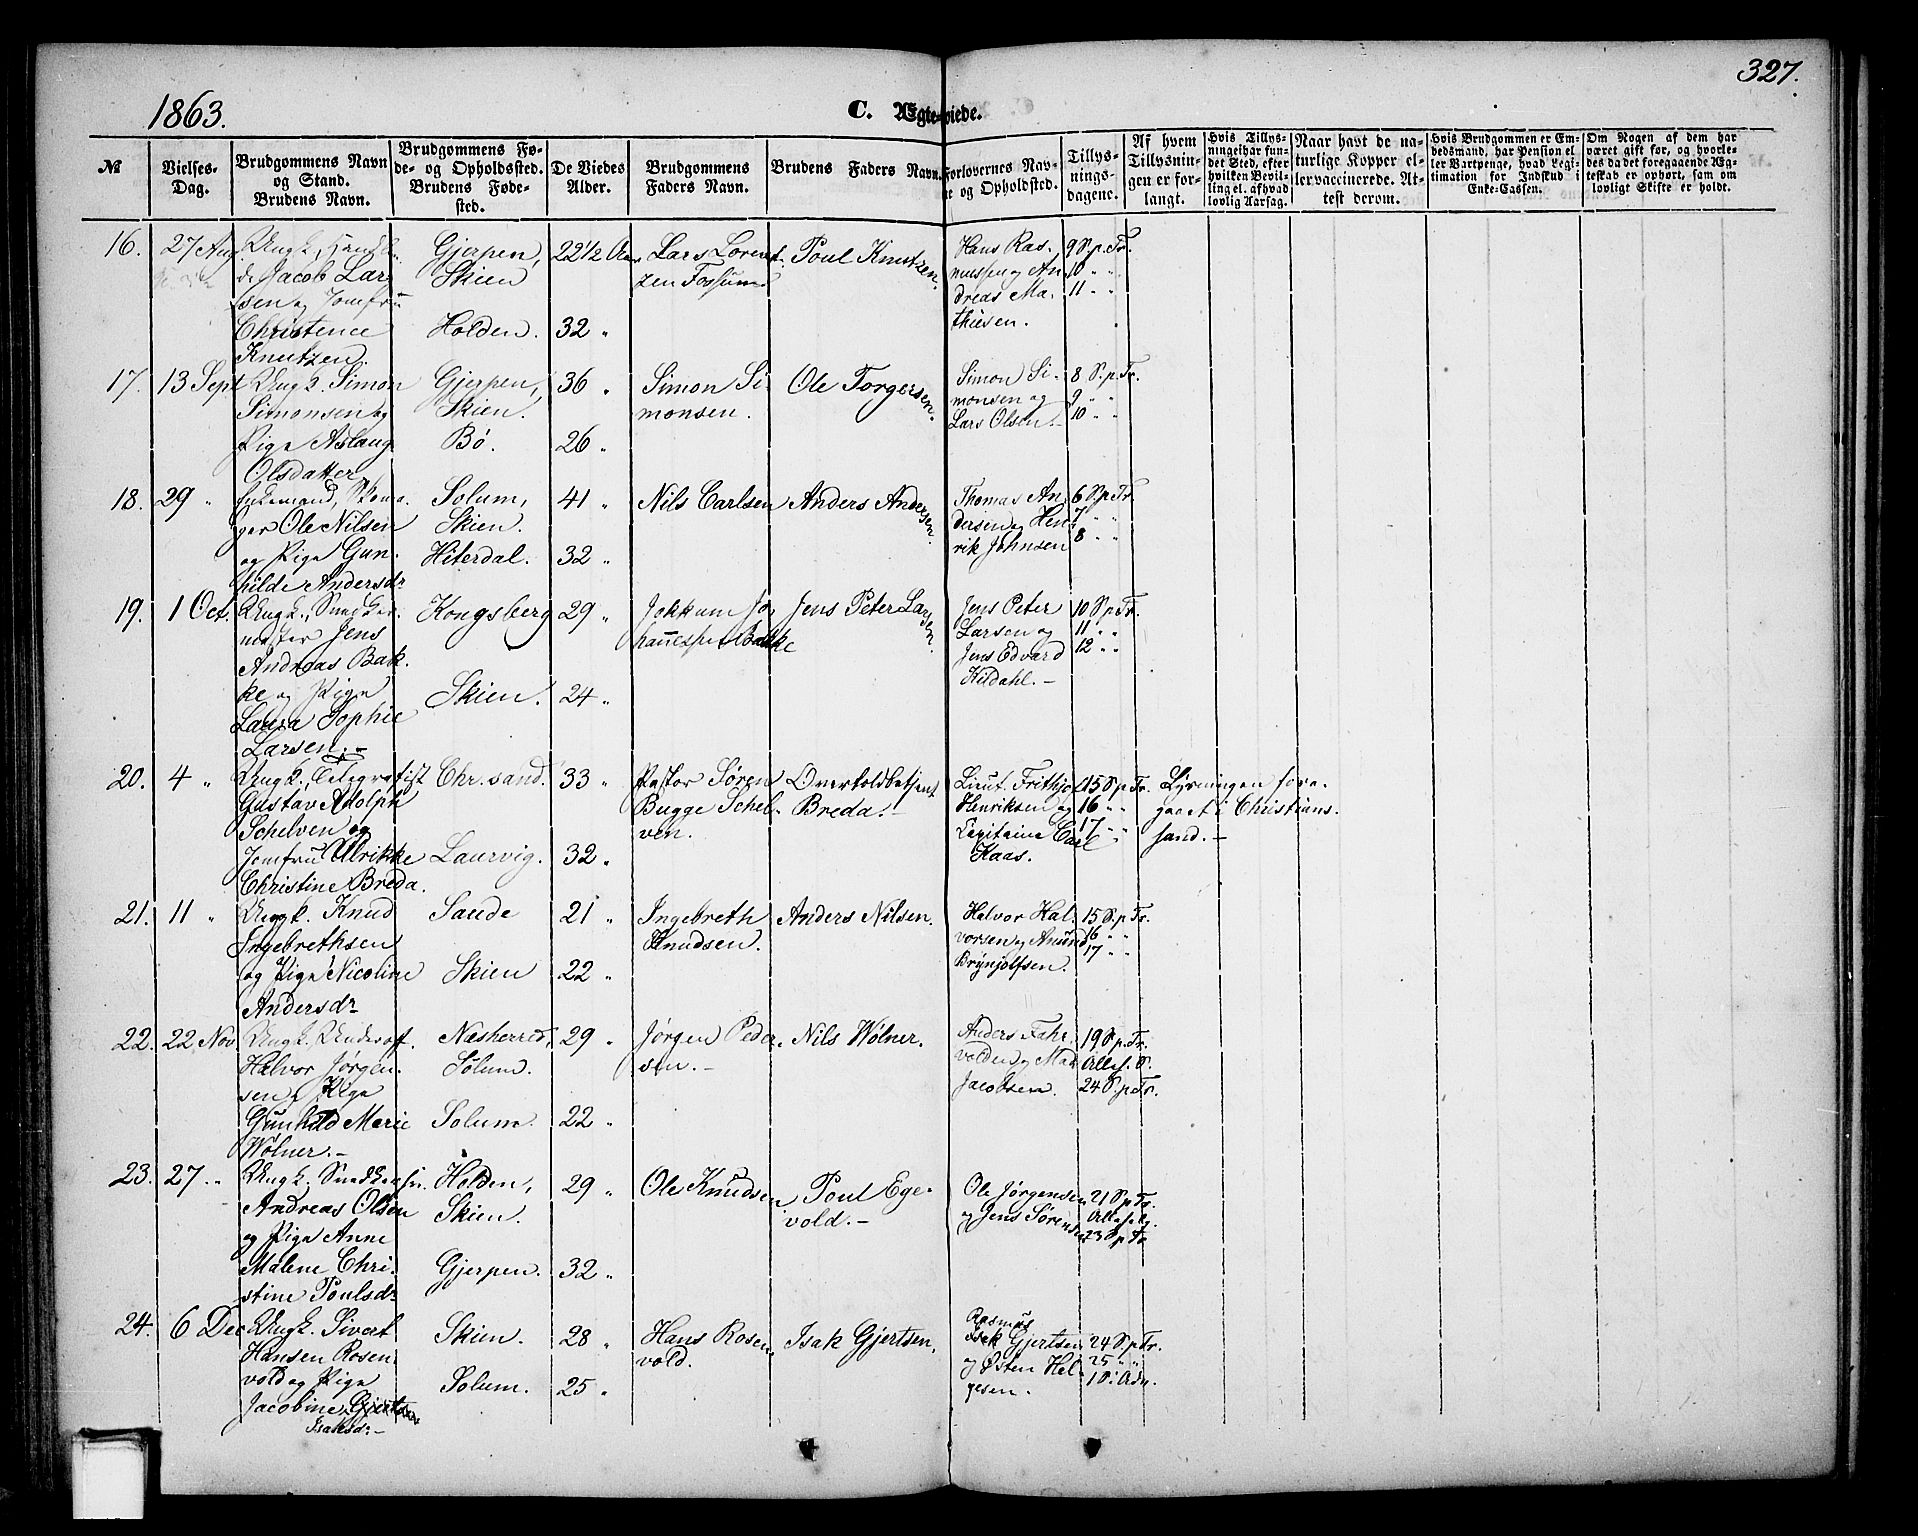 1863.
C. Ægteviede.
327.
№
Vielses-Dag.
Brudgommens Navn og Stand. Brudens Navn.
Brudgommens Føde- og Opholdssted. Brudens Fødested.
De Viedes Alder.
Brudgommens Faders Navn.
Brudens Faders Navn.
Forlovernes Navne og Opholdssted.
Tillysningsdagene.
Af hvem Tillysningen er forlangt.
Hvis Tillysning ei har fundet Sted, efter hvilken Bevilling el. afhvad lovlig Aarsag.
Naar havt de naturlige Kopper eller vaccinerede. Attest derom.
Hvis Brudgommen er Embedsmand, har Pension eller Vartpenge, hvad Legitimation for Indskud i Enke-Cassen.
Om Nogen af dem har været gift før, og hvorledes da det foregaaende Ægteskab er ophørt, sam om lovligt Skifte er holdt.
16. 27 Aug. Ungk. Jacob Larsen og Jomfru Christence Knutzen.
Gjerpen, Skien
Holden.
22 1/2 Aar
32 "
Lars Lorentzen Fossum
Poul Knutzen.
Hans Rasmussen og Andreas Mathiesen.
9 S. p. Tr.
10 " "
11 " "
17. 13 Sept Ungk. Simon Simonsen og Pige Aslaug Olsdatter
Gjerpen, Skien.
Bö.
36 "
26 "
Simon Simonsen.
Ole Torgersen.
Simon Simonsen og Lars Olsen.-
8 S. p. Tr.
9 " "
10 " "
18. 29 " Enkemand, Skomager Ole Nilsen og Pige Gunhilde Andersdr
Solum, Skien.
Hiterdal.
41 "
32 "
Nils Carlsen
Anders Andersen.
Thomas Andersen og Henrik Johnsen
6 S. p. Tr.
7 " "
8 " "
19. 1 Oct. Ungk., Snedkermester Jens Andreas Bakke og Pige Laura Sophie Larsen.-
Kongsberg
Skien.
29 "
24 "
Jokkum Johannessen Bakke
Jens Peter Larsen
Jens Peter Larsen og Jens Edvard Kildahl.-
10 S. p. Tr.
11 " "
12 " "
20. 4 " Ungk., Telegrafist Gustav Adolph Schelven og Jomfru Ulrikke Christine Breda.
Chr.sand.
Laurvig.
33 "
32 "
Pastor Søren Bugge Schelven.
Overtoldbetjent Breda.-
Lieut. Frithjof Henriksen og Capitaine Carl Kaas.
15 S. p. Tr.
16 " "
17 " "
Lysningen foregaaet i Christianssand.-
21. 11 " Ungk. Knud Ingebrethsen og Pige Nicoline Andersdr
Saude
Skien
21 "
22 "
Ingebreth Knudsen.
Anders Nilsen.
Halvor Halvorsen og Amund Brynjolfsen.
15 S. p. Tr.
16 " "
17 " "
22. 22 Nov. Ungk. Underoff. Halvor Jörgensen og Pige Gunhild Marie Wölner.-
Næsherred, Solum.
Solum.
29 "
22 "
Jörgen Pedersen.-
Nils Wölner.
Anders Fahrvolden og Mads Jacobsen.
19 S. p. Tr.
Alleh. S.
24 S. p. Tr.
23. 27 " Ungk. Andreas Olsen og Pige Anne Malene Christine Poulsdr
Holden, Skien.
Gjerpen.
29 "
32 "
Ole Knudsen
Poul Egevold.-
Ole Jörgensen og Jens Sörensen
21 S. p. Tr.
23 S. p. Tr
24. 6 Dec Ungk. Sivert Hansen Rosenvold og Pige Jacobine Gjertsen
Isaksd:-
Skien.
Solum.
28 "
25 "
Hans Rosenvold.
Isak Gjertsen.
Rasmus
Isak Gjertsen og Østen Helgesen.
24 S. p. Tr.
25 " "
1 S. i Adv.